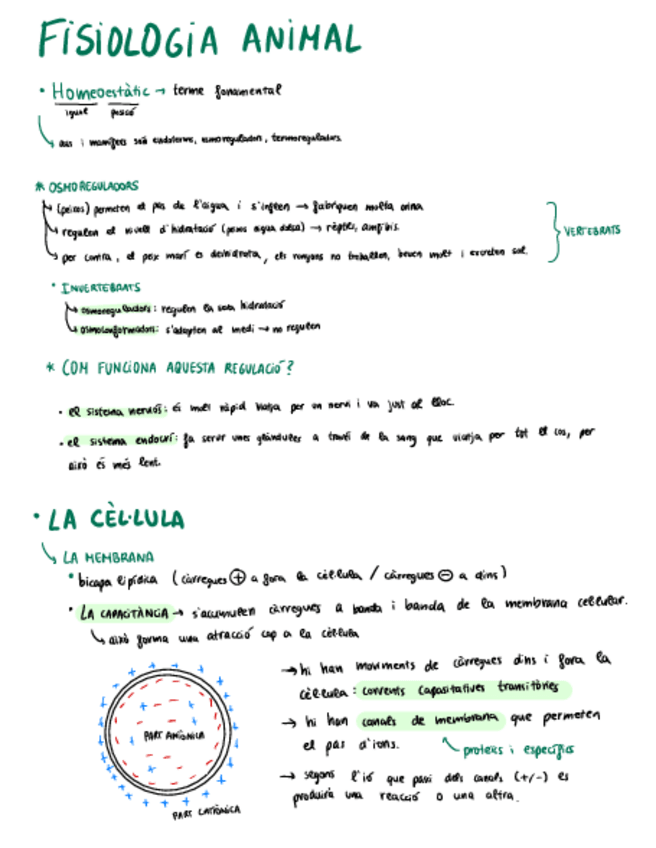 FISIOLOGIA ANIMAL
• Homeostàtic → terme fonamental
igual posició
aus i mamífers són endoterms, osmoreguladors, termoreguladors.
* OSMOREGULADORS
(peixos) permeten el pas de l'aigua i s'inflen → fabriquen molta orina
regulen el nivell d'hidratació (peixos aigua dolsa) → rèptils, amfibis.
per contra, el peix marí es deshidrata, els ronyons no treballen, beuen molt i excreten sal.
VERTEBRATS
• INVERTEBRATS
osmoreguladors: regulen la seva hidratació
osmoconformadors: s'adapten al medi → no regulen
* COM FUNCIONA AQUESTA REGULACIÓ?
• el sistema nerviós: és molt ràpid viatja per un nervi i va just al lloc.
• el sistema endocrí: fa servir unes glàndules a través de la sang que viatja per tot el cos, per
això és més lent.
• LA CÈL·LULA
LA MEMBRANA
• bicapa lipídica (càrregues + a fora la cèl·lula / càrregues - a dins)
• LA CAPACITÀNCIA → s'acumulen càrregues a banda i banda de la membrana cel·lular.
això forma una atracció cap a la cèl·lula
→ hi han moviments de càrregues dins i fora la
cèl·lula: corrents capacitatives transitòries
→ hi han canals de membrana que permeten
el pas d'ions.
proteics i específics
→ segons l'ió que passi dels canals (+/-) es
produirà una reacció o una altra.
PART ANIÒNICA
PART CATIÒNICA